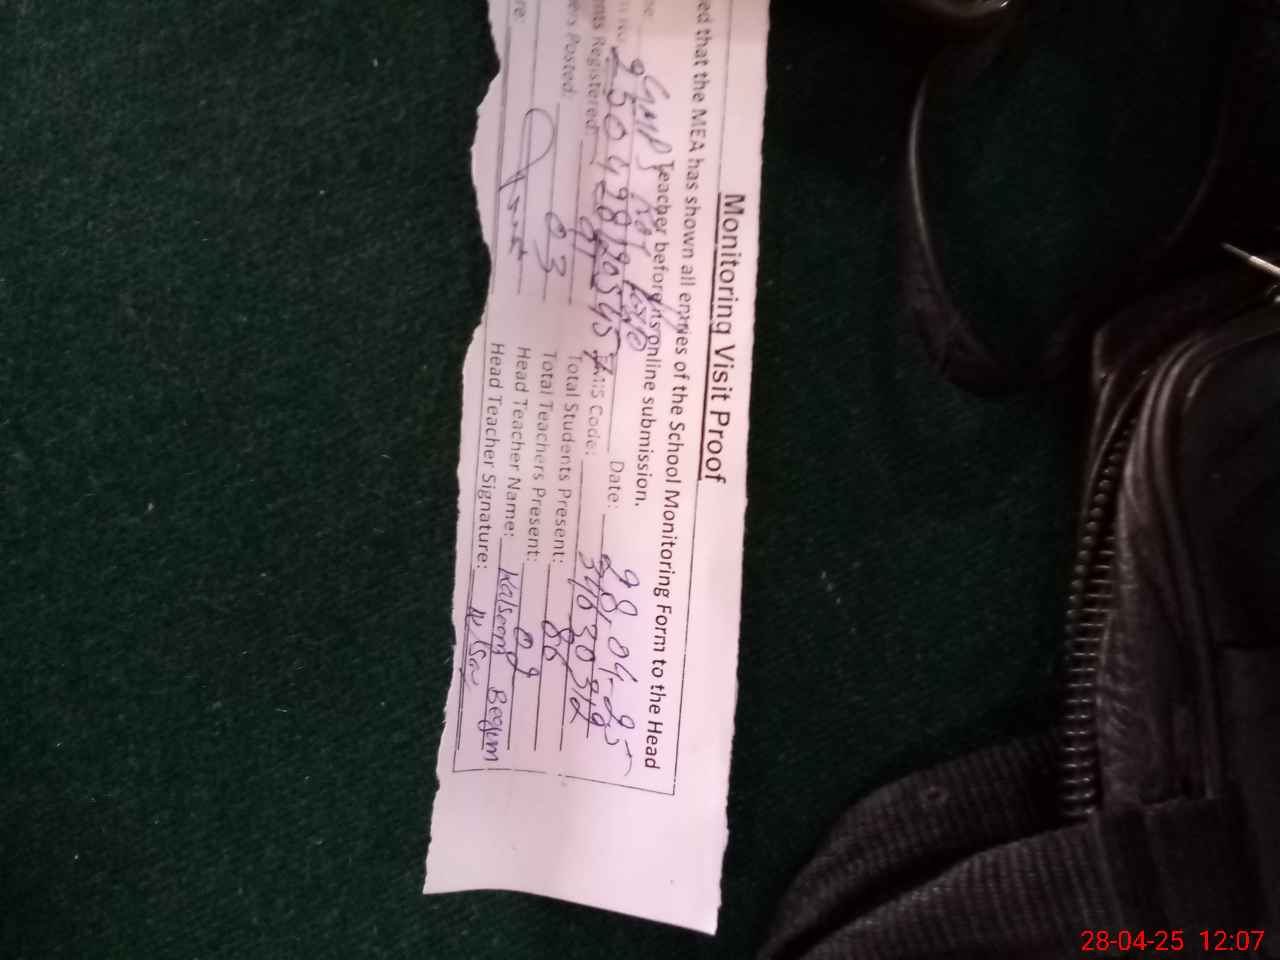 Monitoring Visit Proof
ed that the MEA has shown all entries of the School Monitoring Form to the Head
Teacher before its online submission.
GMPS
Date: 28.04-25
EMIS Code: 34630312
nts Registered: 91 Total Students Present: 86
rs Posted: 03 Total Teachers Present: 02
Head Teacher Name: Kalsoom Begum
re: Head Teacher Signature:
28-04-25 12:07